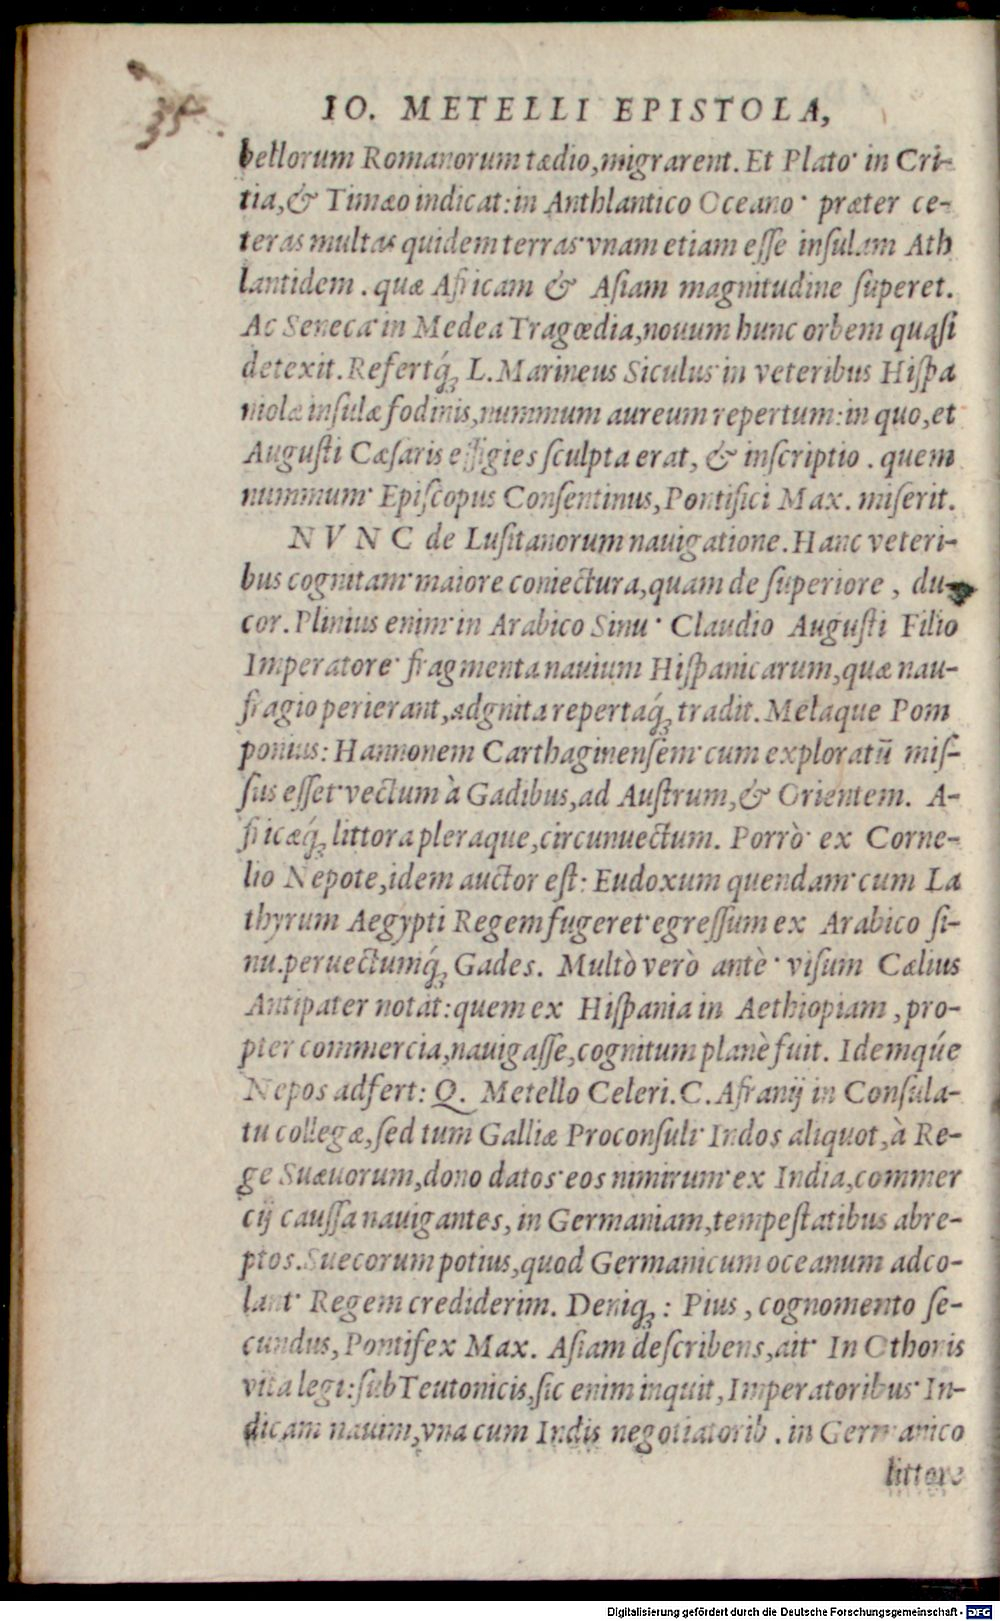 35.
IO. METELLI EPISTOLA,
bellorum Romanorum tædio, migrarent. Et Plato in Cri-
tia, & Timæo indicat: in Anthlantico Oceano præter ce-
teras multas quidem terras vnam etiam eſſe inſulam Ath
lantidem. quæ Africam & Aſiam magnitudine ſuperet.
Ac Seneca in Medea Tragœdia, nouum hunc orbem quaſi
detexit. Refertq́; L. Marineus Siculus in veteribus Hiſpa
niolæ inſulæ fodinis, nummum aureum repertum: in quo, et
Auguſti Cæſaris effigies ſculpta erat, & inſcriptio. quem
nummum Epiſcopus Conſentinus, Pontifici Max. miſerit.
NVNC de Luſitanorum nauigatione. Hanc veteri-
bus cognitam maiore coniectura, quam de ſuperiore, du-
cor. Plinius enim in Arabico Sinu Claudio Auguſti Filio
Imperatore fragmenta nauium Hiſpanicarum, quæ nau-
fragio perierant, adgnita repertaq́; tradit. Melaque Pom
ponius: Hannonem Carthaginenſem cum exploratū miſ-
ſus eſſet vectum à Gadibus, ad Auſtrum, & Orientem. A-
fricæq́; littora pleraque, circunuectum. Porrò ex Corne-
lio Nepote, idem auctor eſt: Eudoxum quendam cum La
thyrum Aegypti Regem fugeret egreſſum ex Arabico ſi-
nu. peruectumq́; Gades. Multò verò antè viſum Cælius
Antipater notat: quem ex Hiſpania in Aethiopiam, pro-
pter commercia, nauigaſſe, cognitum planè fuit. Idemqúe
Nepos adfert: Q. Metello Celeri. C. Afranij in Conſula-
tu collegæ, ſed tum Galliæ Proconſuli Indos aliquot, à Re-
ge Suæuorum, dono datos eos nimirum ex India, commer
cij cauſſa nauigantes, in Germaniam, tempeſtatibus abre-
ptos. Suecorum potius, quod Germanicum oceanum adco-
lant Regem crediderim. Deniq; : Pius, cognomento ſe-
cundus, Pontifex Max. Aſiam deſcribens, ait In Othonis
vita legi: ſub Teutonicis, ſic enim inquit, Imperatoribus In-
dicam nauim, vna cum Indis negotiatorib. in Germanico
littore
Digitalisierung gefördert durch die Deutsche Forschungsgemeinschaft - DFG